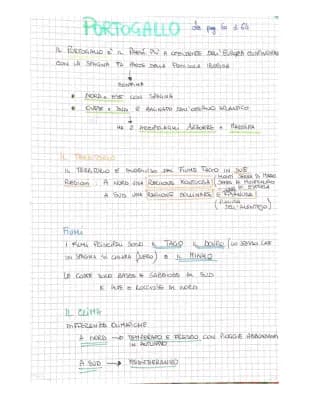 PORTOGALLO da pag 60 a 64
IL PORTOGALLO È IL PAESE PIÙ A OCCIDENTE DELL'EUROPA CONFINANTE
CON LA SPAGNA FA PARTE DELLA PENISOLA IBERICA
CONFINA
NORD e EST CON SPAGNA
OVEST e SUD È BAGNATO DALL'OCEANO ATLANTICO
HA 2 ARCIPELAGHI AZZORRE e MADEIRA
IL TERRITORIO
IL TERRITORIO È DAL FIUME TAGO IN DUE
REGIONI: A NORD UNA REGIONE MONTUOSA
A SUD UNA REGIONE COLLINARE E PIANURA
(PIANURA
DELL'ALENTEJO)
FIUMI
I FIUMI PRINCIPALI SONO IL TAGO IL DOURO (LO STESSO CHE
IN SPAGNA SI CHIAMA DUERO) E IL MINHO
LE COSTE SONO BASSE E SABBIOSE A SUD
E ALTE e ROCCIOSE A NORD
IL CLIMA
DIFFERENZE CLIMATICHE
A NORD → TEMPERATO E FRESCO CON PIOGGE ABBONDANTI
IN AUTUNNO
A SUD → MEDITERRANEO